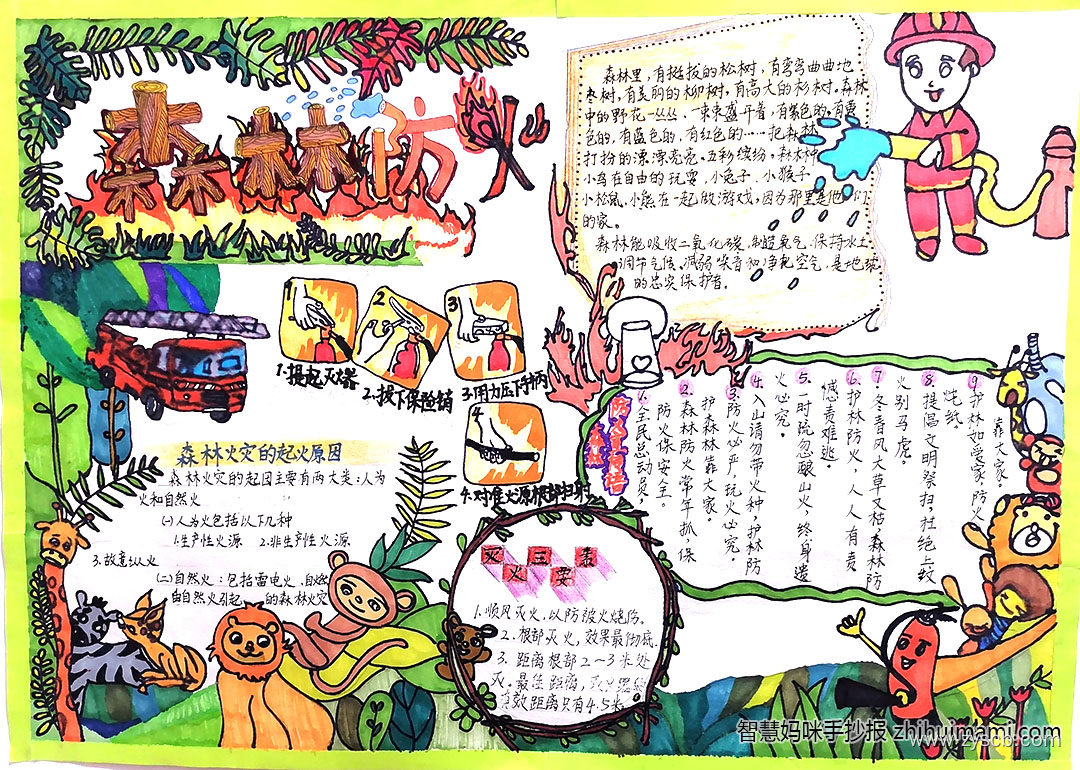 森林防火
森林里，有挺拔的松树，有弯弯曲曲地
枣树，有美丽的柳树，有高大的杉树。森林
中的野花一丛丛、一束束盛开着，有紫色的，有黄
色的，有蓝色的，有红色的……把森林
打扮的漂漂亮亮。五彩缤纷。森林中
小鸟在自由的玩耍，小兔子，小猴子
小松鼠，小熊在一起做游戏，因为那里是他们
的家。
森林能吸收二氧化碳，制造氧气，保持水土，
调节气候、减弱噪音和净化空气，是地球
的忠实保护者。
1
2
3
1.提起灭火器
2.拔下保险销
3.用力压下手柄
4
4.对准火源根部扫射
森林火灾的起火原因
森林火灾的起因主要有两大类：人为
火和自然火
(一)人为火包括以下几种
1.生产性火源 2.非生产性火源
3.故意纵火
(二)自然火：包括雷电火、自燃
由自然火引起 的森林火灾
灭火三要素
1.顺风灭火，以防被火烧伤。
2.根部灭火，效果最彻底。
3.距离根部2~3米处
灭。最佳距离，灭火器
有效距离只有4.5米。
1.全民总动员。
防火保安全。
2.森林防火常年抓，保
护森林靠大家。
3.防火必严，玩火必究。
4.入山请勿带火种，护林防
火必究。
5.一时疏忽酿山火，终身遗
憾责难逃。
6.护林防火，人人有责
7.冬春风大草又枯，森林防
火别马虎。
8.提倡文明祭扫，杜绝上坟
烧纸。
9.护林如爱家，防火
靠大家。
智慧妈咪手抄报 zhihuimami.com
www.zyscb.com